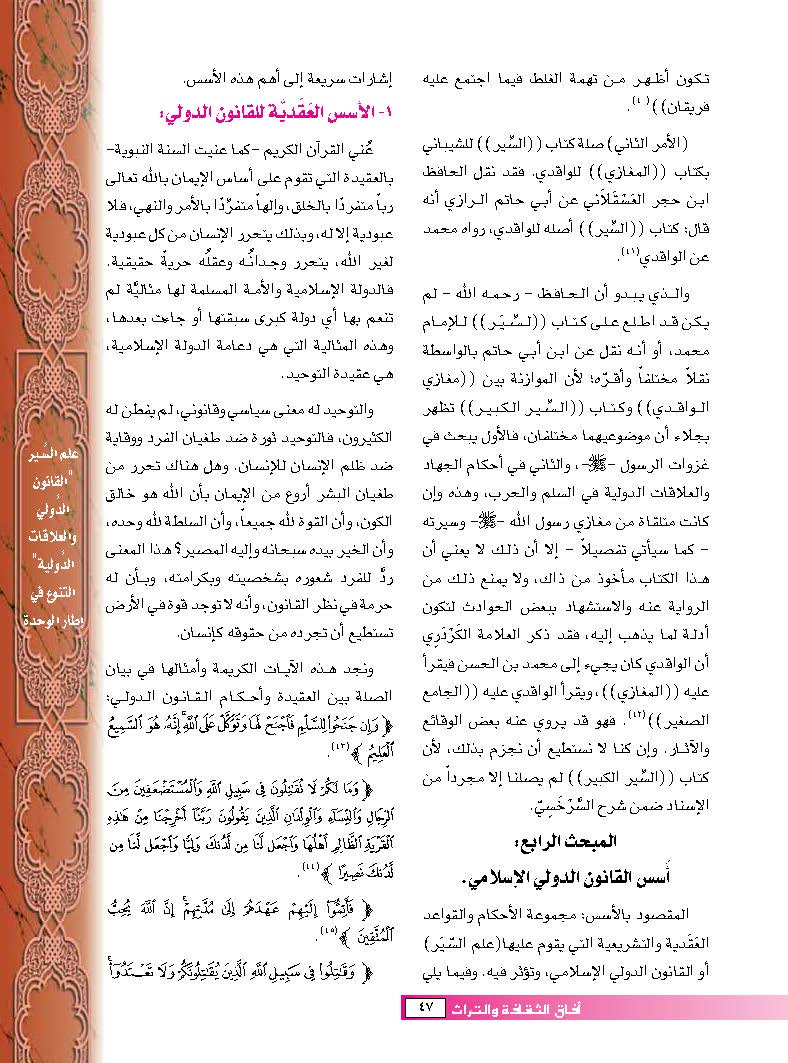 تكون أظهر من تهمة الغلط فيما اجتمع عليه
فريقان))(٤٠).
(الأمر الثاني) صلة كتاب ((السِّير)) للشيباني
بكتاب ((المغازي)) للواقدي. فقد نقل الحافظ
ابن حجر العَسْقَلاَني عن أبي حاتم الرازي أنه
قال: كتاب ((السِّير)) أصله للواقدي، رواه محمد
عن الواقدي(٤١).
والذي يبدو أن الحافظ - رحمه الله - لم
يكن قد اطلع على كتاب ((السِّيَر)) للإمام
محمد، أو أنه نقل عن ابن أبي حاتم بالواسطة
نقلاً مختلفاً وأقرّه؛ لأن الموازنة بين ((مغازي
الواقدي)) وكتاب ((السِّير الكبير)) تظهر
بجلاء أن موضوعيهما مختلفان، فالأول يبحث في
غزوات الرسول -ﷺ-، والثاني في أحكام الجهاد
والعلاقات الدولية في السلم والحرب، وهذه وإن
كانت متلقاة من مغازي رسول الله -ﷺ- وسيرته
- كما سيأتي تفصيلاً - إلا أن ذلك لا يعني أن
هذا الكتاب مأخوذ من ذاك، ولا يمنع ذلك من
الرواية عنه والاستشهاد ببعض الحوادث لتكون
أدلة لما يذهب إليه، فقد ذكر العلامة الكَرْدَرِي
أن الواقدي كان يجيء إلى محمد بن الحسن فيقرأ
عليه ((المغازي))، ويقرأ الواقدي عليه ((الجامع
الصغير))(٤٢). فهو قد يروي عنه بعض الوقائع
والآثار. وإن كنا لا نستطيع أن نجزم بذلك، لأن
كتاب ((السِّير الكبير)) لم يصلنا إلا مجرداً من
الإسناد ضمن شرح السَّرْخَسِيّ.
المبحث الرابع:
أسس القانون الدولي الإسلامي.
المقصود بالأسس: مجموعة الأحكام والقواعد
العَقَدية والتشريعية التي يقوم عليها(علم السِّيَر)
أو القانون الدولي الإسلامي، وتؤثر فيه. وفيما يلي
إشارات سريعة إلى أهم هذه الأسس.
١- الأسس العَقَديَّة للقانون الدولي:
عُني القرآن الكريم -كما عنيت السنة النبوية-
بالعقيدة التي تقوم على أساس الإيمان بالله تعالى
رباً متفردًا بالخلق، وإلهاً متفرِّدًا بالأمر والنهي، فلا
عبودية إلا له، وبذلك يتحرر الإنسان من كل عبودية
لغير الله، يتحرر وجدانُه وعقلُه حريةً حقيقية.
فالدولة الإسلامية والأمة المسلمة لها مثاليَّة لم
تنعم بها أي دولة كبرى سبقتها أو جاءت بعدها،
وهذه المثالية التي هي دعامة الدولة الإسلامية،
هي عقيدة التوحيد.
والتوحيد له معنى سياسي وقانوني، لم يفطن له
الكثيرون، فالتوحيد ثورة ضد طغيان الفرد ووقاية
ضد ظلم الإنسان للإنسان. وهل هناك تحرر من
طغيان البشر أروع من الإيمان بأن الله هو خالق
الكون، وأن القوة لله جميعاً، وأن السلطة لله وحده،
وأن الخير بيده سبحانه وإليه المصير؟ هذا المعنى
ردَّ للفرد شعوره بشخصيته وبكرامته، وبأن له
حرمة في نظر القانون، وأنه لا توجد قوة في الأرض
تستطيع أن تجرده من حقوقه كإنسان.
ونجد هذه الآيات الكريمة وأمثالها في بيان
الصلة بين العقيدة وأحكام القانون الدولي:
﴿ وَإِن جَنَحُوا لِلسَّلْمِ فَاجْنَحْ لَهَا وَتَوَكَّلْ عَلَى اللَّهِ إِنَّهُ هُوَ السَّمِيعُ
الْعَلِيمُ ﴾(٤٣).
﴿ وَمَا لَكُمْ لَا تُقَاتِلُونَ فِي سَبِيلِ اللَّهِ وَالْمُسْتَضْعَفِينَ مِنَ
الرِّجَالِ وَالنِّسَاءِ وَالْوِلْدَانِ الَّذِينَ يَقُولُونَ رَبَّنَا أَخْرِجْنَا مِنْ هَٰذِهِ
الْقَرْيَةِ الظَّالِمِ أَهْلُهَا وَاجْعَل لَّنَا مِن لَّدُنكَ وَلِيًّا وَاجْعَل لَّنَا مِن
لَّدُنكَ نَصِيرًا ﴾(٤٤).
﴿ فَأَتِمُّوا إِلَيْهِمْ عَهْدَهُمْ إِلَىٰ مُدَّتِهِمْ إِنَّ اللَّهَ يُحِبُّ
الْمُتَّقِينَ ﴾(٤٥).
﴿ وَقَاتِلُوا فِي سَبِيلِ اللَّهِ الَّذِينَ يُقَاتِلُونَكُمْ وَلَا تَعْتَدُوا
علم السِّير
"القانون
الدولي
والعلاقات
الدولية"
التنوع في
إطار الوحدة
آفاق الثقافة والتراث ٤٧